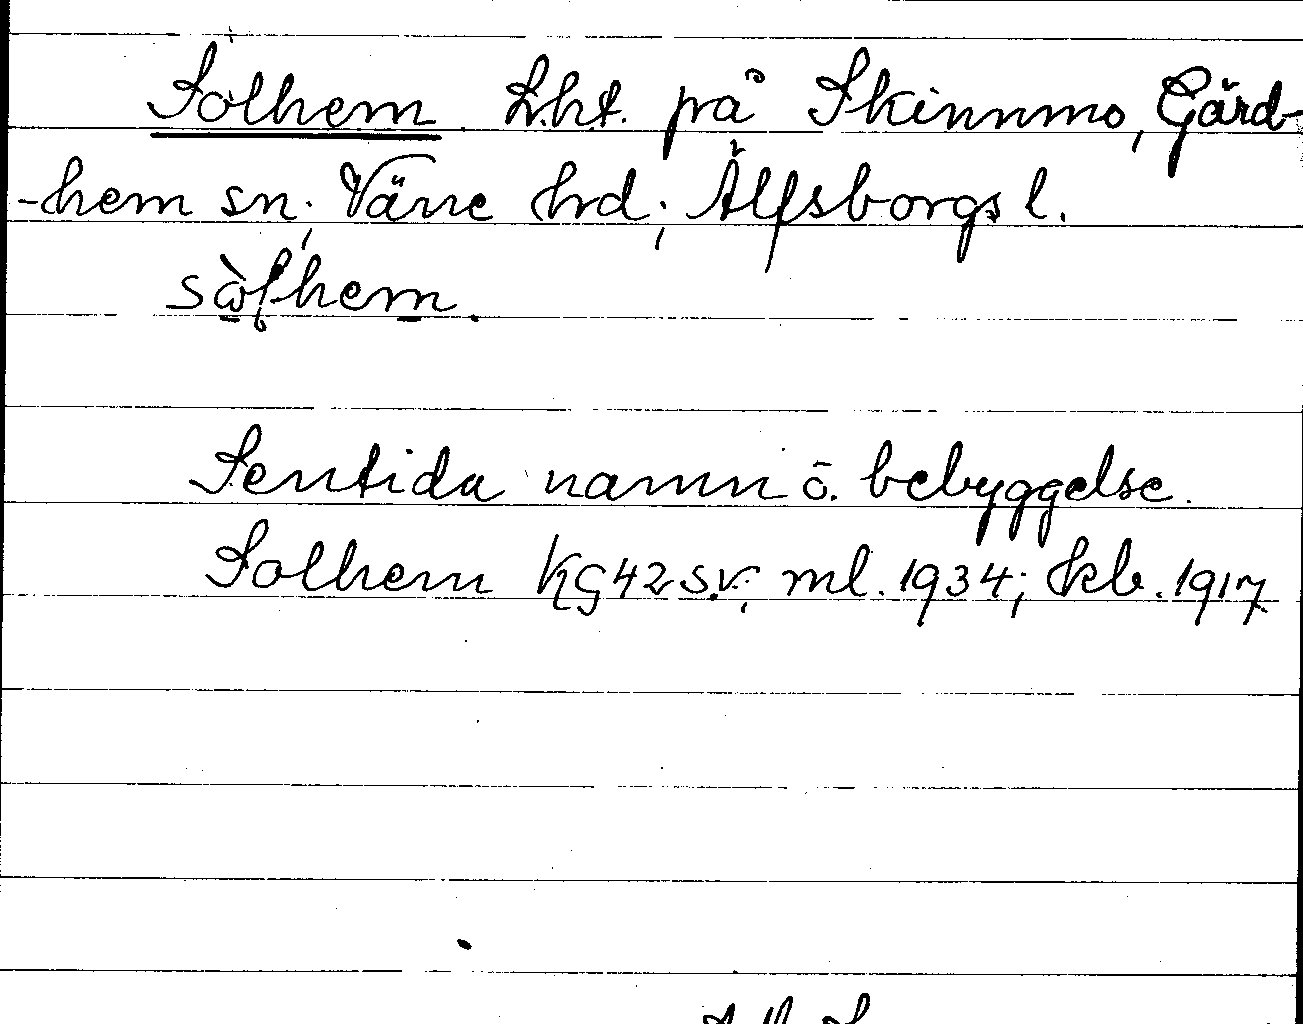 Solhem. Lht. på Skinnmo, Gärd-
-hem sn; Väne hrd; Älfsborgs l.
sàlhem.
Sentida namn o. bebyggelse.
Solhem KG42 s.v; ml. 1934; skb. 1917